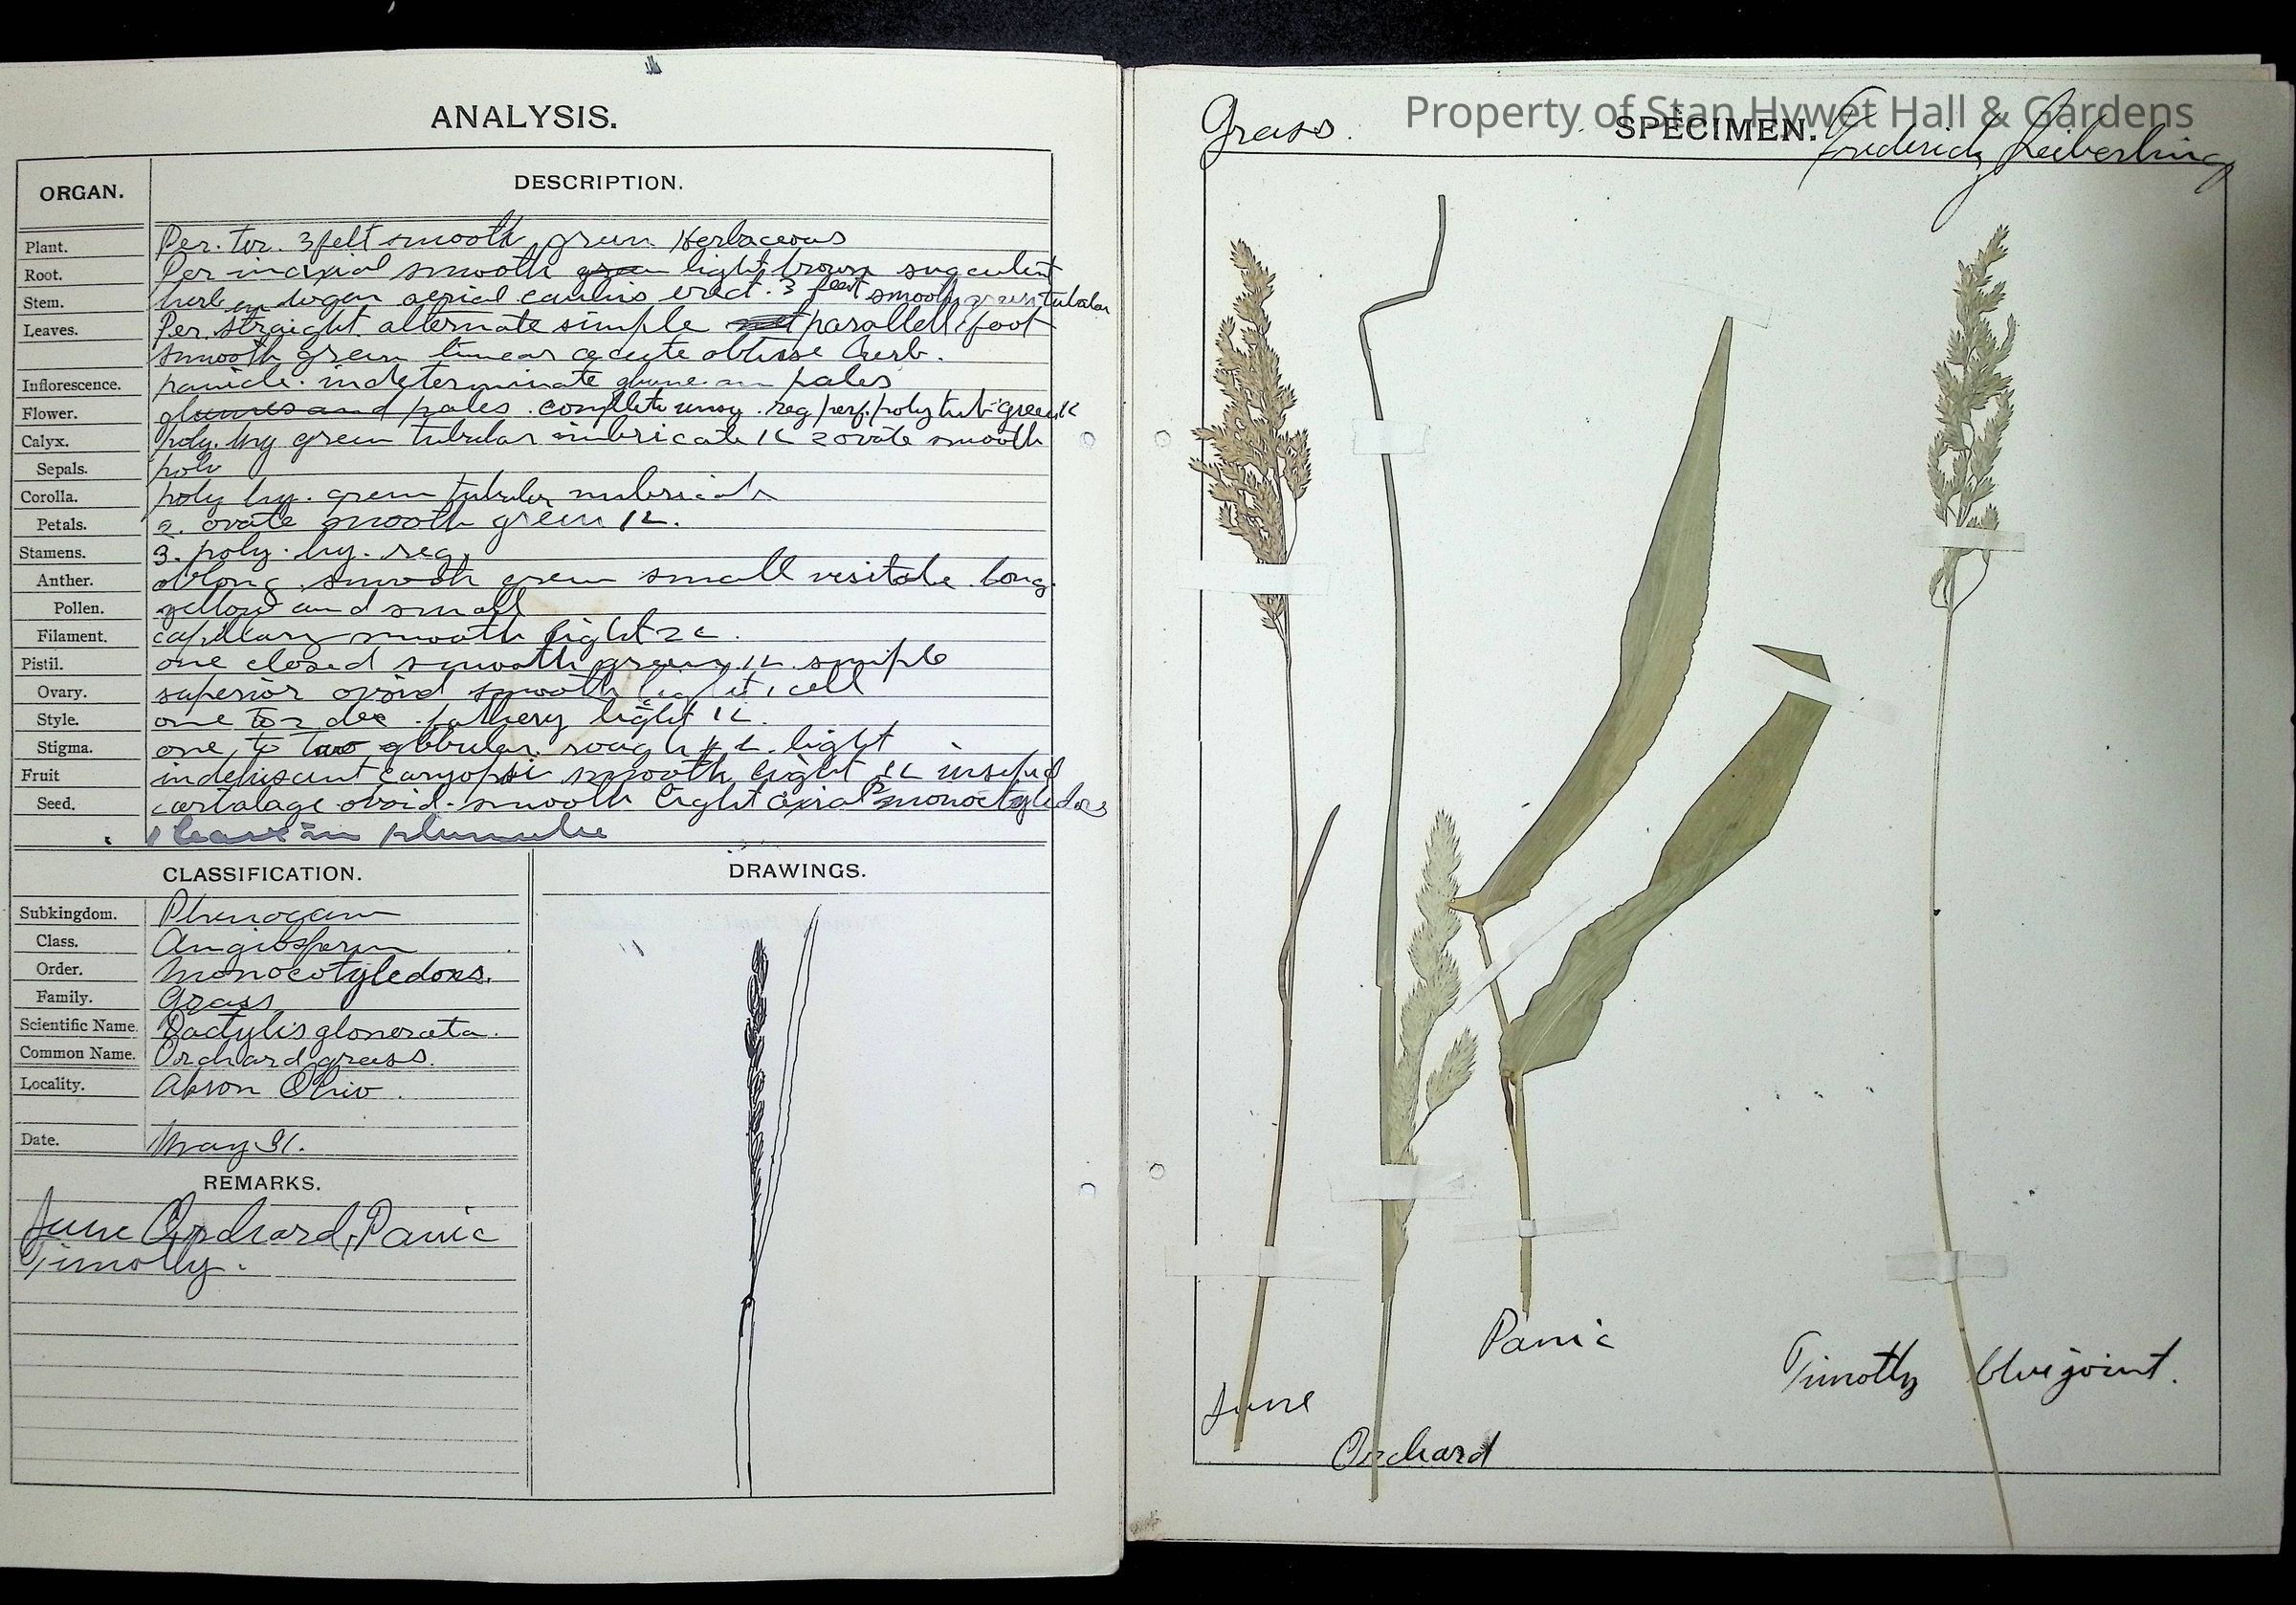 ANALYSIS.
ORGAN. DESCRIPTION.
Plant. Per. ter. 3 felt smooth, green Herbaceous
Root. Per in axial smooth light brown succulent
Stem. herb aerial caulis erect. 3 feet smooth green tubular
Leaves. Per. straight alternate simple parallell foot
smooth green linear acute obtuse herb.
Inflorescence. panicle. indeterminate glume an pales
Flower. glumes and pales. complete unsy. reg perf. poly tub green
Calyx. poly. hy green tubular imbricate 2 ovate smooth
Sepals. poly
Corolla. poly hy. green tubular
Petals. 2. ovate smooth green
Stamens. 3. poly. hy. reg.
Anther. oblong smooth green small long.
Pollen. yellow and small
Filament. capillary smooth light
Pistil. one closed smooth green simple
Ovary. superior ovoid smooth light 1 cell
Style. one to 2 light
Stigma. one to two globular rough light
Fruit smooth light
Seed. cartalage ovoid. smooth light axial
1 leaf in plumule
CLASSIFICATION. DRAWINGS.
Subkingdom. Phenogam
Class. Angiosperm
Order. Monocotyledons.
Family. Grass
Scientific Name. Dactylis glonerata.
Common Name. Orchard grass.
Locality. Akron Ohio.
Date. May 31.
REMARKS.
June Orchard, Panic
Timothy.
Grass. SPECIMEN. Frederick Seiberling
Property of Stan Hywet Hall & Gardens
Panic
Timothy blue joint.
June
Orchard